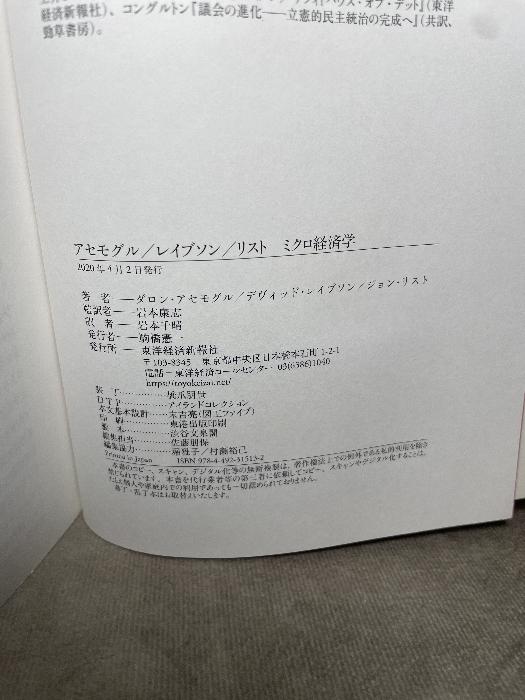 イハウス・オブ・デット』(東洋
経済新報社)、コングルトン『議会の進化――立憲的民主統治の完成へ』(共訳、
勁草書房)。
アセモグル/レイブソン/リスト ミクロ経済学
2020年4月2日発行
著 者――ダロン・アセモグル/デヴィッド・レイブソン/ジョン・リスト
監訳者――岩本康志
訳 者――岩本千晴
発行者――駒橋憲一
発行所――東洋経済新報社
〒103-8345 東京都中央区日本橋本石町1-2-1
電話=東洋経済コールセンター 03(6386)1040
https://toyokeizai.net/
装 丁…………橋爪朋世
DTP…………アイランドコレクション
本文基本設計……末吉亮(図工ファイブ)
印 刷…………東港出版印刷
製 本…………渋谷文泉閣
編集担当…………佐藤朋保
編集協力…………堀雅子/村瀬裕己
Printed in Japan ISBN 978-4-492-31513-2
本書のコピー、スキャン、デジタル化等の無断複製は、著作権法上での例外である私的利用を除き
禁じられています。本書を代行業者等の第三者に依頼してコピー、スキャンやデジタル化することは、
たとえ個人や家庭内での利用であっても一切認められておりません。
落丁・乱丁本はお取替えいたします。